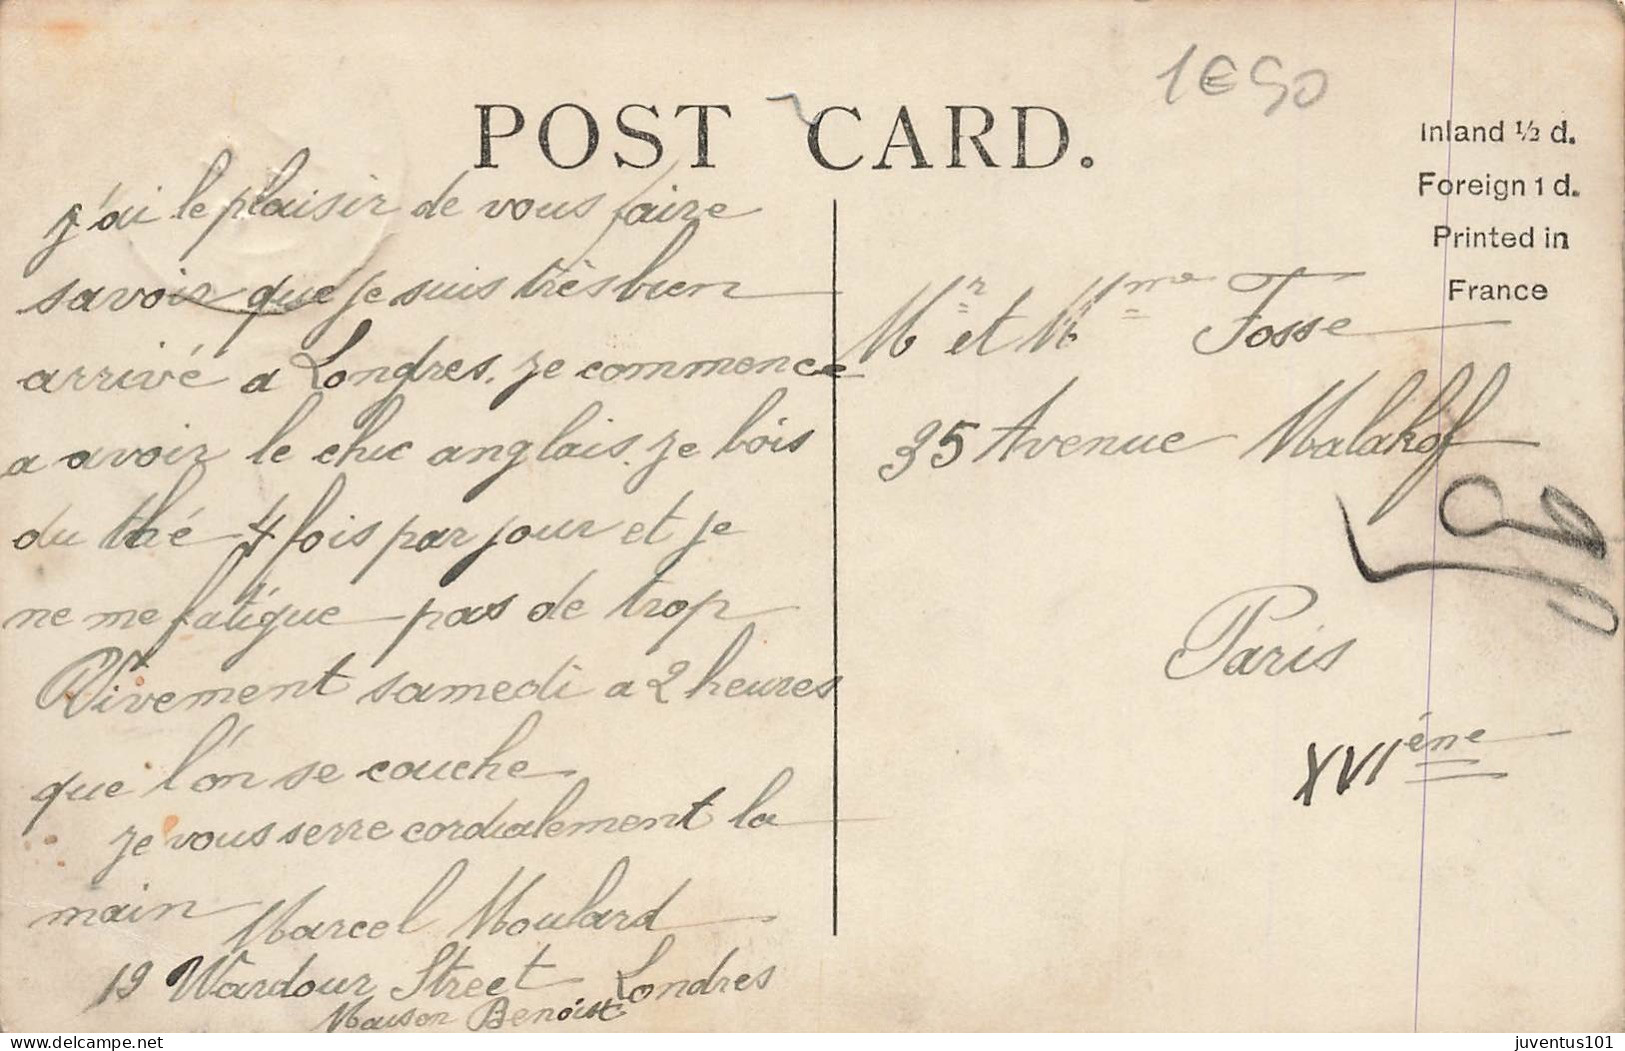 1€50
POST CARD.
Inland ½ d.
Foreign 1 d.
Printed in
France
j'ai le plaisir de vous faire
savoir que je suis très bien
arrivé a Londres. je commence
a avoir le chic anglais. je bois
du thé 4 fois par jour et je
ne me fatigue pas de trop
Vivement samedi a 2 heures
que l'on se couche
je vous serre cordialement la
main Marcel Moulard
19 Wardour Street Londres
Maison Benoist
Mr et Mme Fosse
35 Avenue Malakof
Paris
XVIème
juventus101